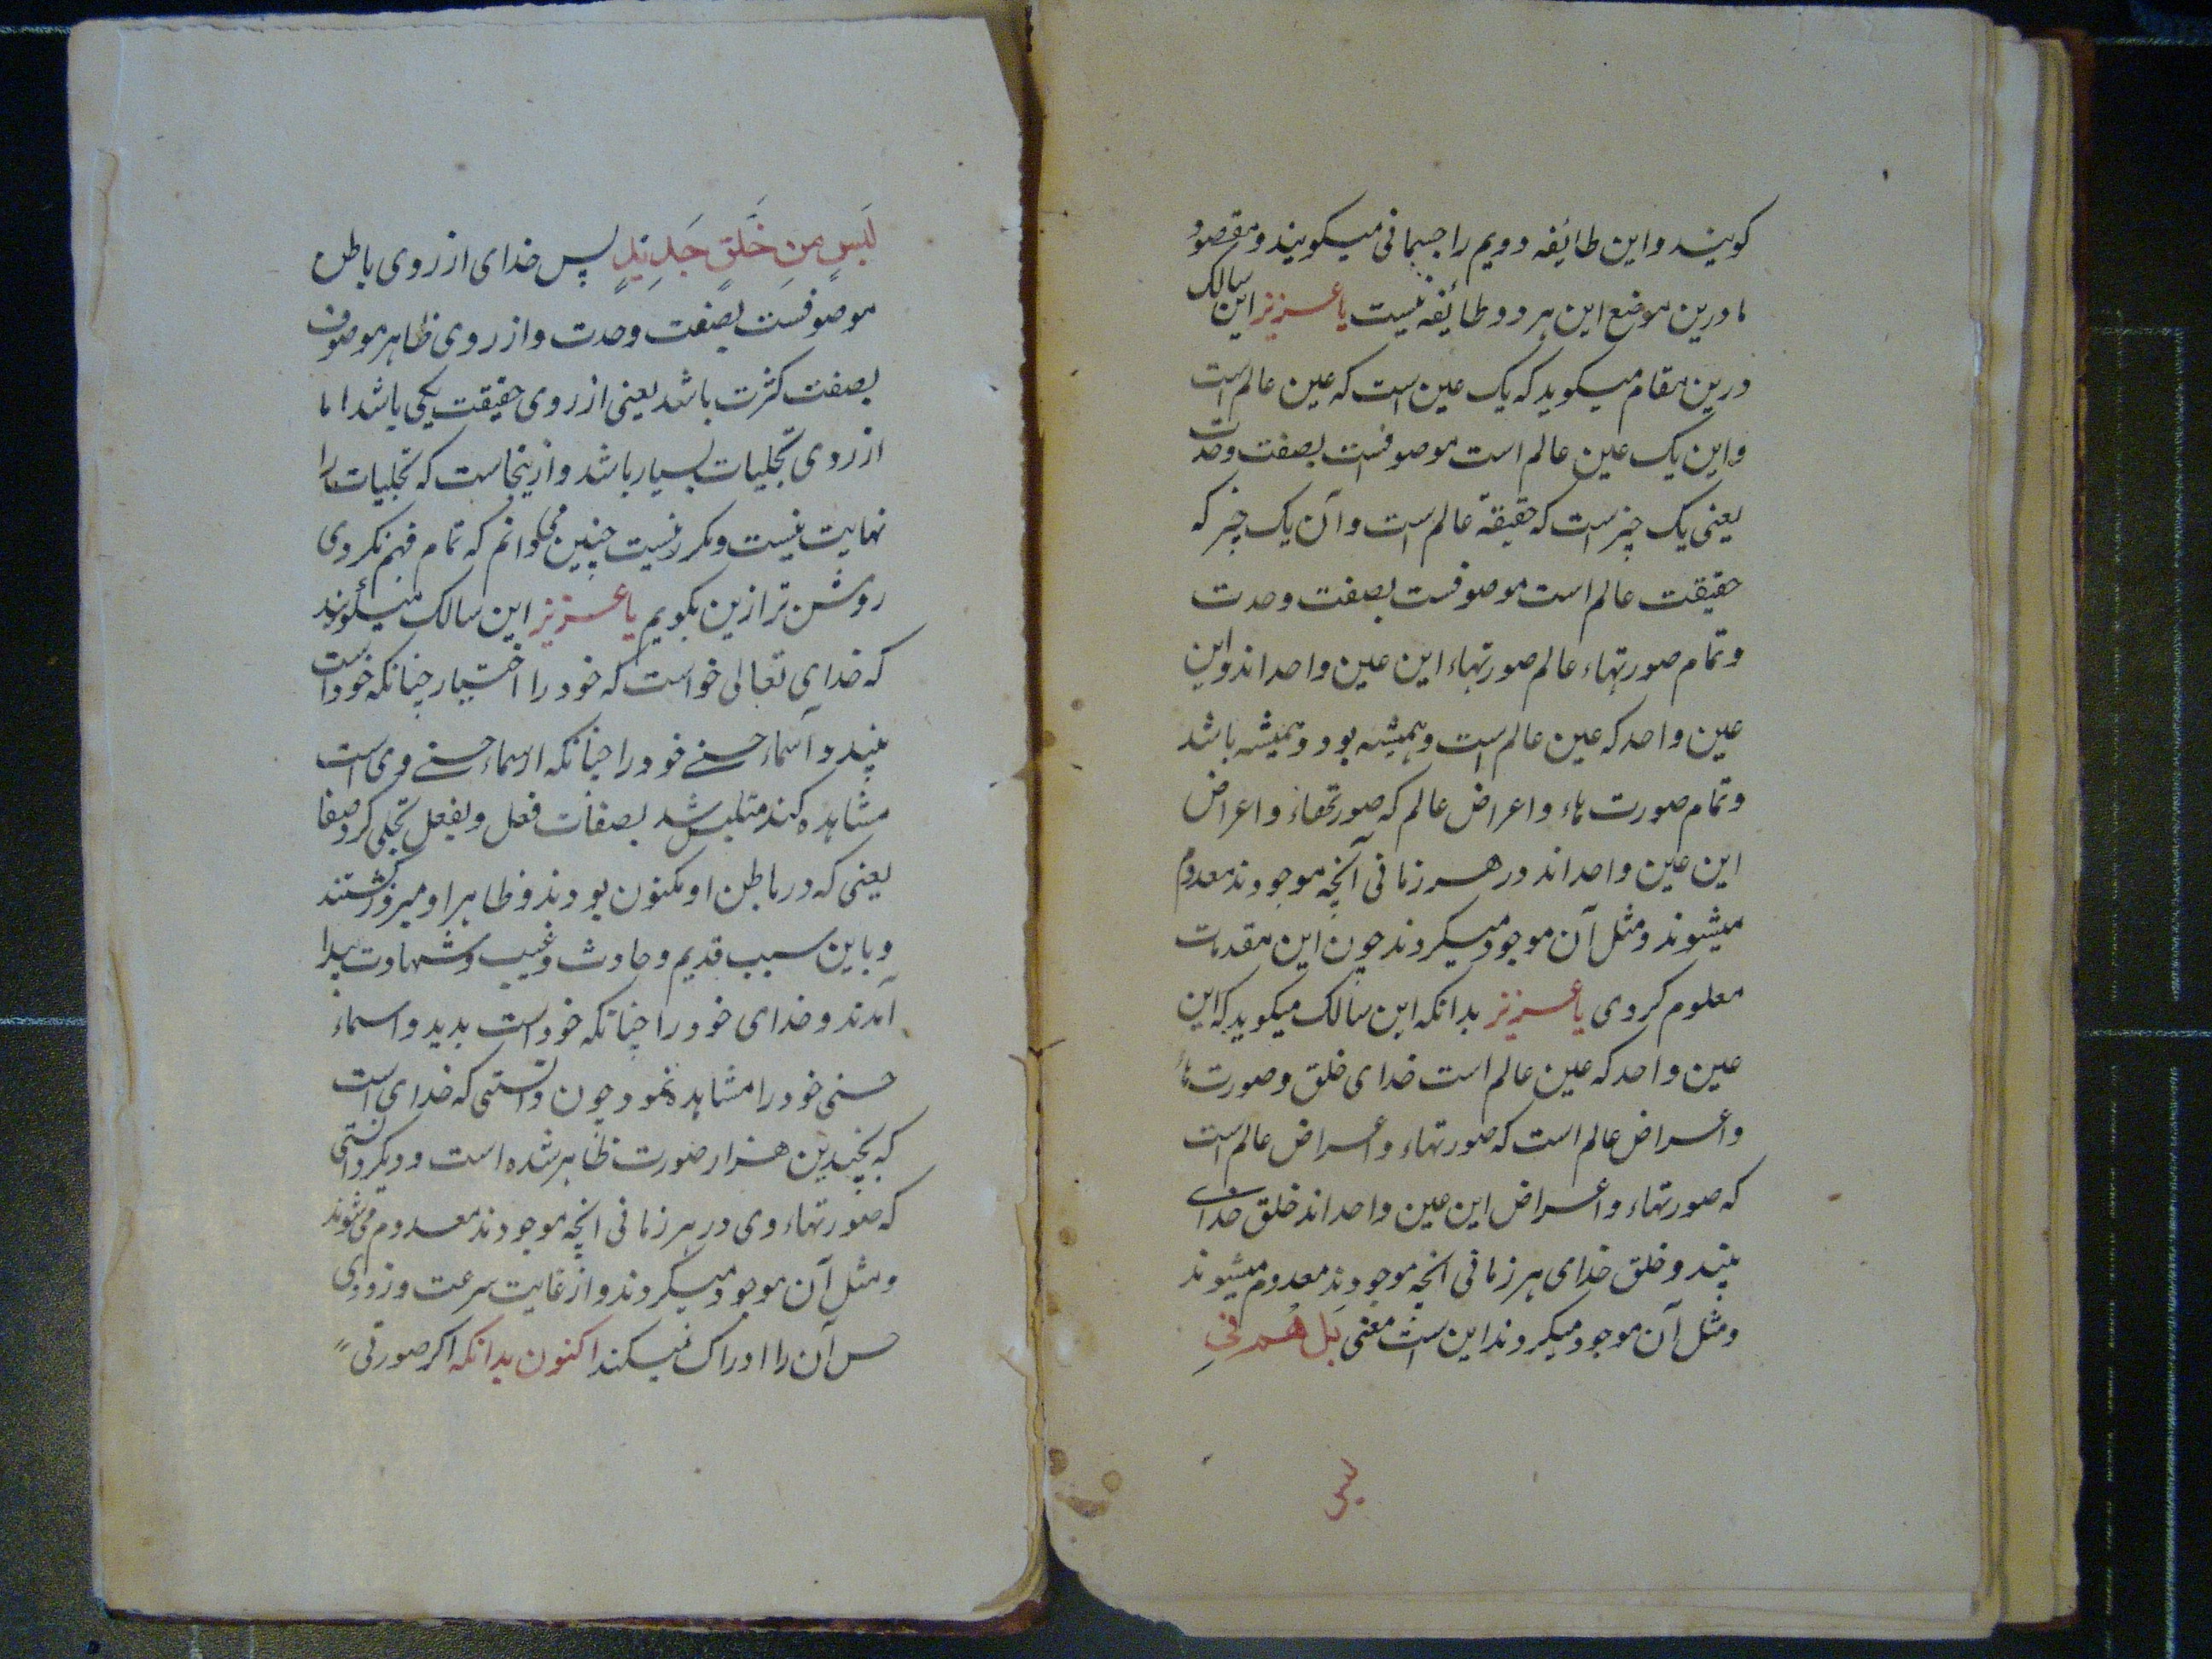 کویند و این طایفه دویم را جسمانی میکویند و مقصود
ما درین موضع این هر دو طایفه نیست یا عزیز این سالک
درین مقام میکوید که یک عین است که عین عالم است
و این یک عین عالم است موصوفست بصفت وحدت
یعنی یک چیز است که حقیقة عالم است و آن یک چیز که
حقیقت عالم است موصوفست بصفت وحدت
و تمام صورتهاء عالم صورتهاء این عین واحد اند و این
عین واحد که عین عالم است و همیشه بود و همیشه باشد
و تمام صورت هاء و اعراض عالم که صورتهاء و اعراض
این عین واحد اند در هر زمانی آنچه موجودند معدوم
میشوند و مثل آن موجود میکردند چون این مقدمات
معلوم کردی یا عزیز بدانکه این سالک میکوید که این
عین واحد که عین عالم است خدای خلق و صورت هاء
و اعراض عالم است که صورتهاء و اعراض عالم است
که صورتهاء و اعراض این عین واحد اند خلق خدای
بیند و خلق خدای هر زمانی انچه موجودند معدوم میشوند
و مثل آن موجود میکردند این است معنی بَل هُم فِی
لَبسٍ مِن خَلقٍ جَدِیدٍ پس خدای از روی باطن
موصوفست بصفت وحدت و از روی ظاهر موصوف
بصفت کثرت باشد یعنی از روی حقیقت یکی باشد اما
از روی تجلیات بسیار باشد و ازینجاست که تجلیات را
نهایت نیست و مکرر نیست چنین می دانم که تمام فهم نکردی
روشن تر ازین بکویم یا عزیز این سالک میکویند
که خدای تعالی خواست که خود را اختیار چنانکه خود است
بیند و آسماء حسنے خود را چنانکه اسماء حسنے وی است
مشاهده کند متلبس شد بصفات فعل و بفعل تجلی کرد صفا
یعنی که در باطن او مکنون بودند و ظاهر او میروز کشتند
و باین سبب قدیم و حادث و غیب و شهادت پیدا
آمدند و خدای خود را چنانکه خود است بدید و اسماء
حسنی خود را مشاهده نمود چون دانستی که خدای است
که بچندین هزار صورت ظاهر شده است و دیکر دانستی
که صورتهاء وی در هر زمانی انچه موجودند معدوم می شوند
و مثل آن موجود میکردند و از غایت سرعت و زودی
حس آن را ادراک نمیکند اکنون بدانکه اکر صورتی